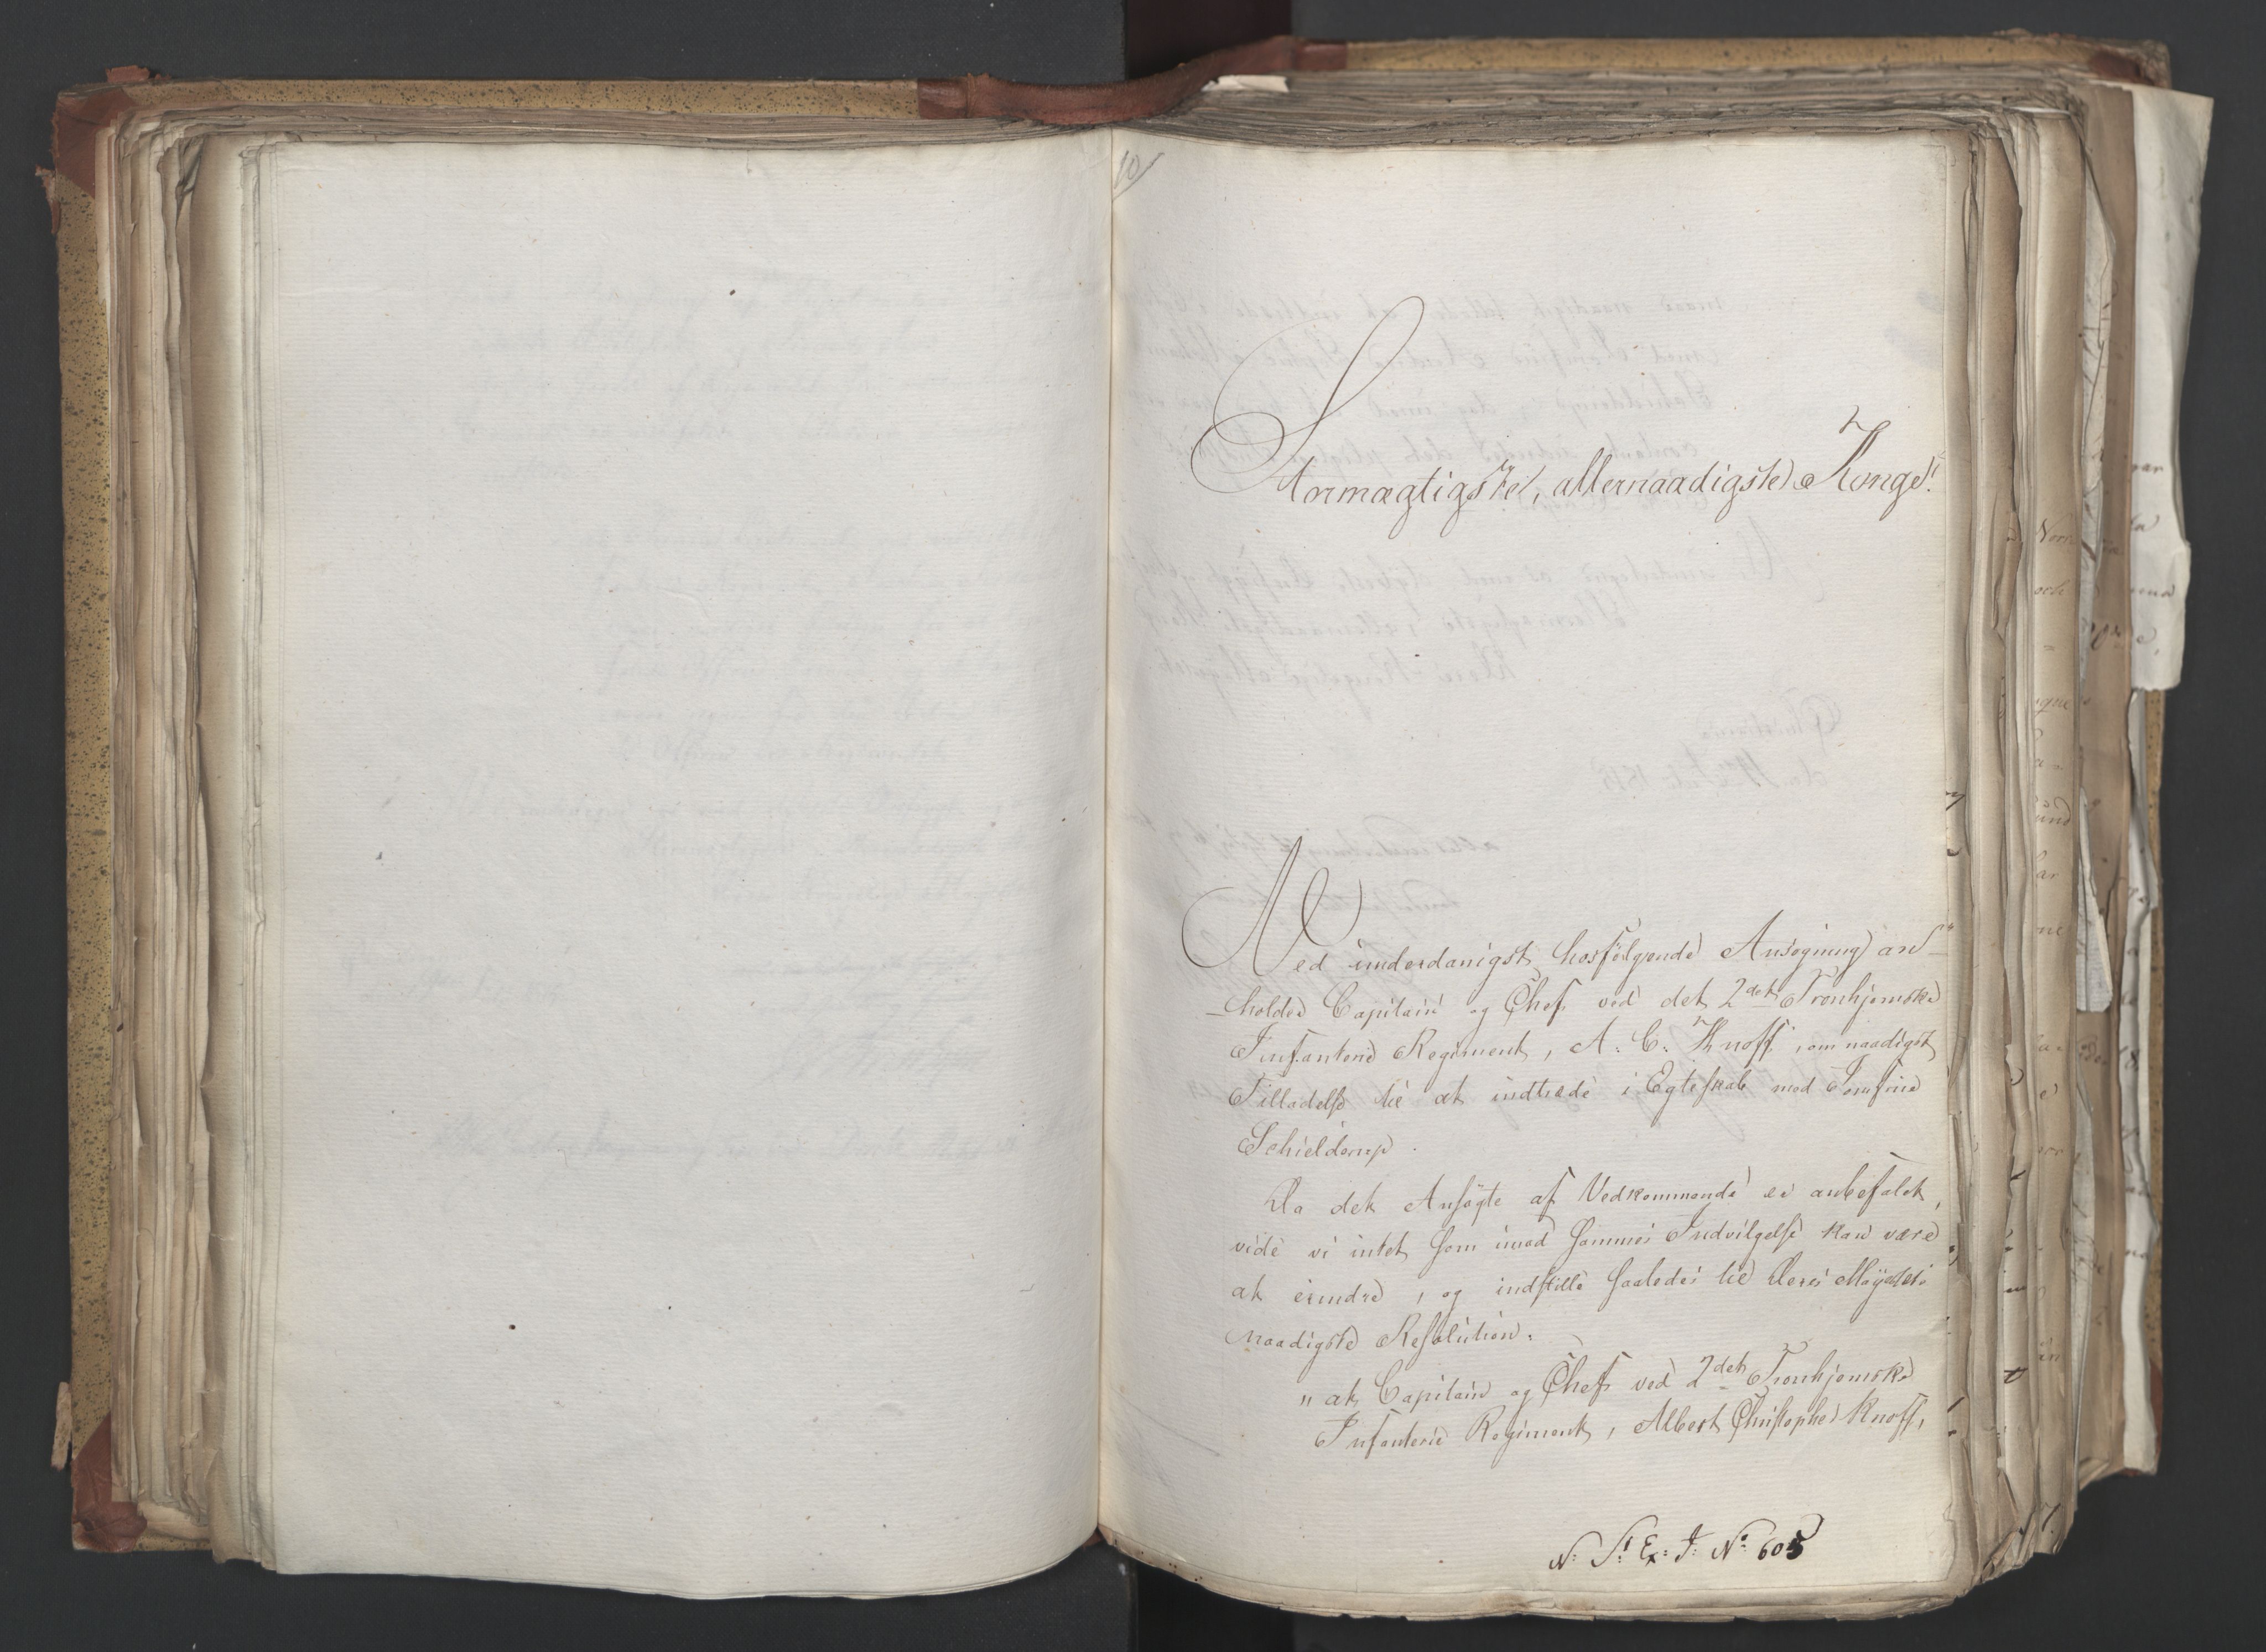 10/
Stormægtigste, allernaadigste Konge!
Med underdanigst hosfølgende Ansøgning an-
-holder Capitain og Chef ved det 2det Tronhjemske
Infanterie Regiment, A: C: Knoff, om naadigst
Tilladelse til at indtræde i Egteskab med Jomfrue
Schielderup.
Da det Ansøgte af Vedkommende er anbefalet,
vide vi intet som imod sammes Indvilgelse kan være
at erindre, og indstille saaledes til Deres Majestets
naadigste Resolution:
" at Capitain og Chef ved 2det Tronhjemske
Infanterie Regiment, Albert Christopher Knoff,
N: St: Ex: J: No: 605